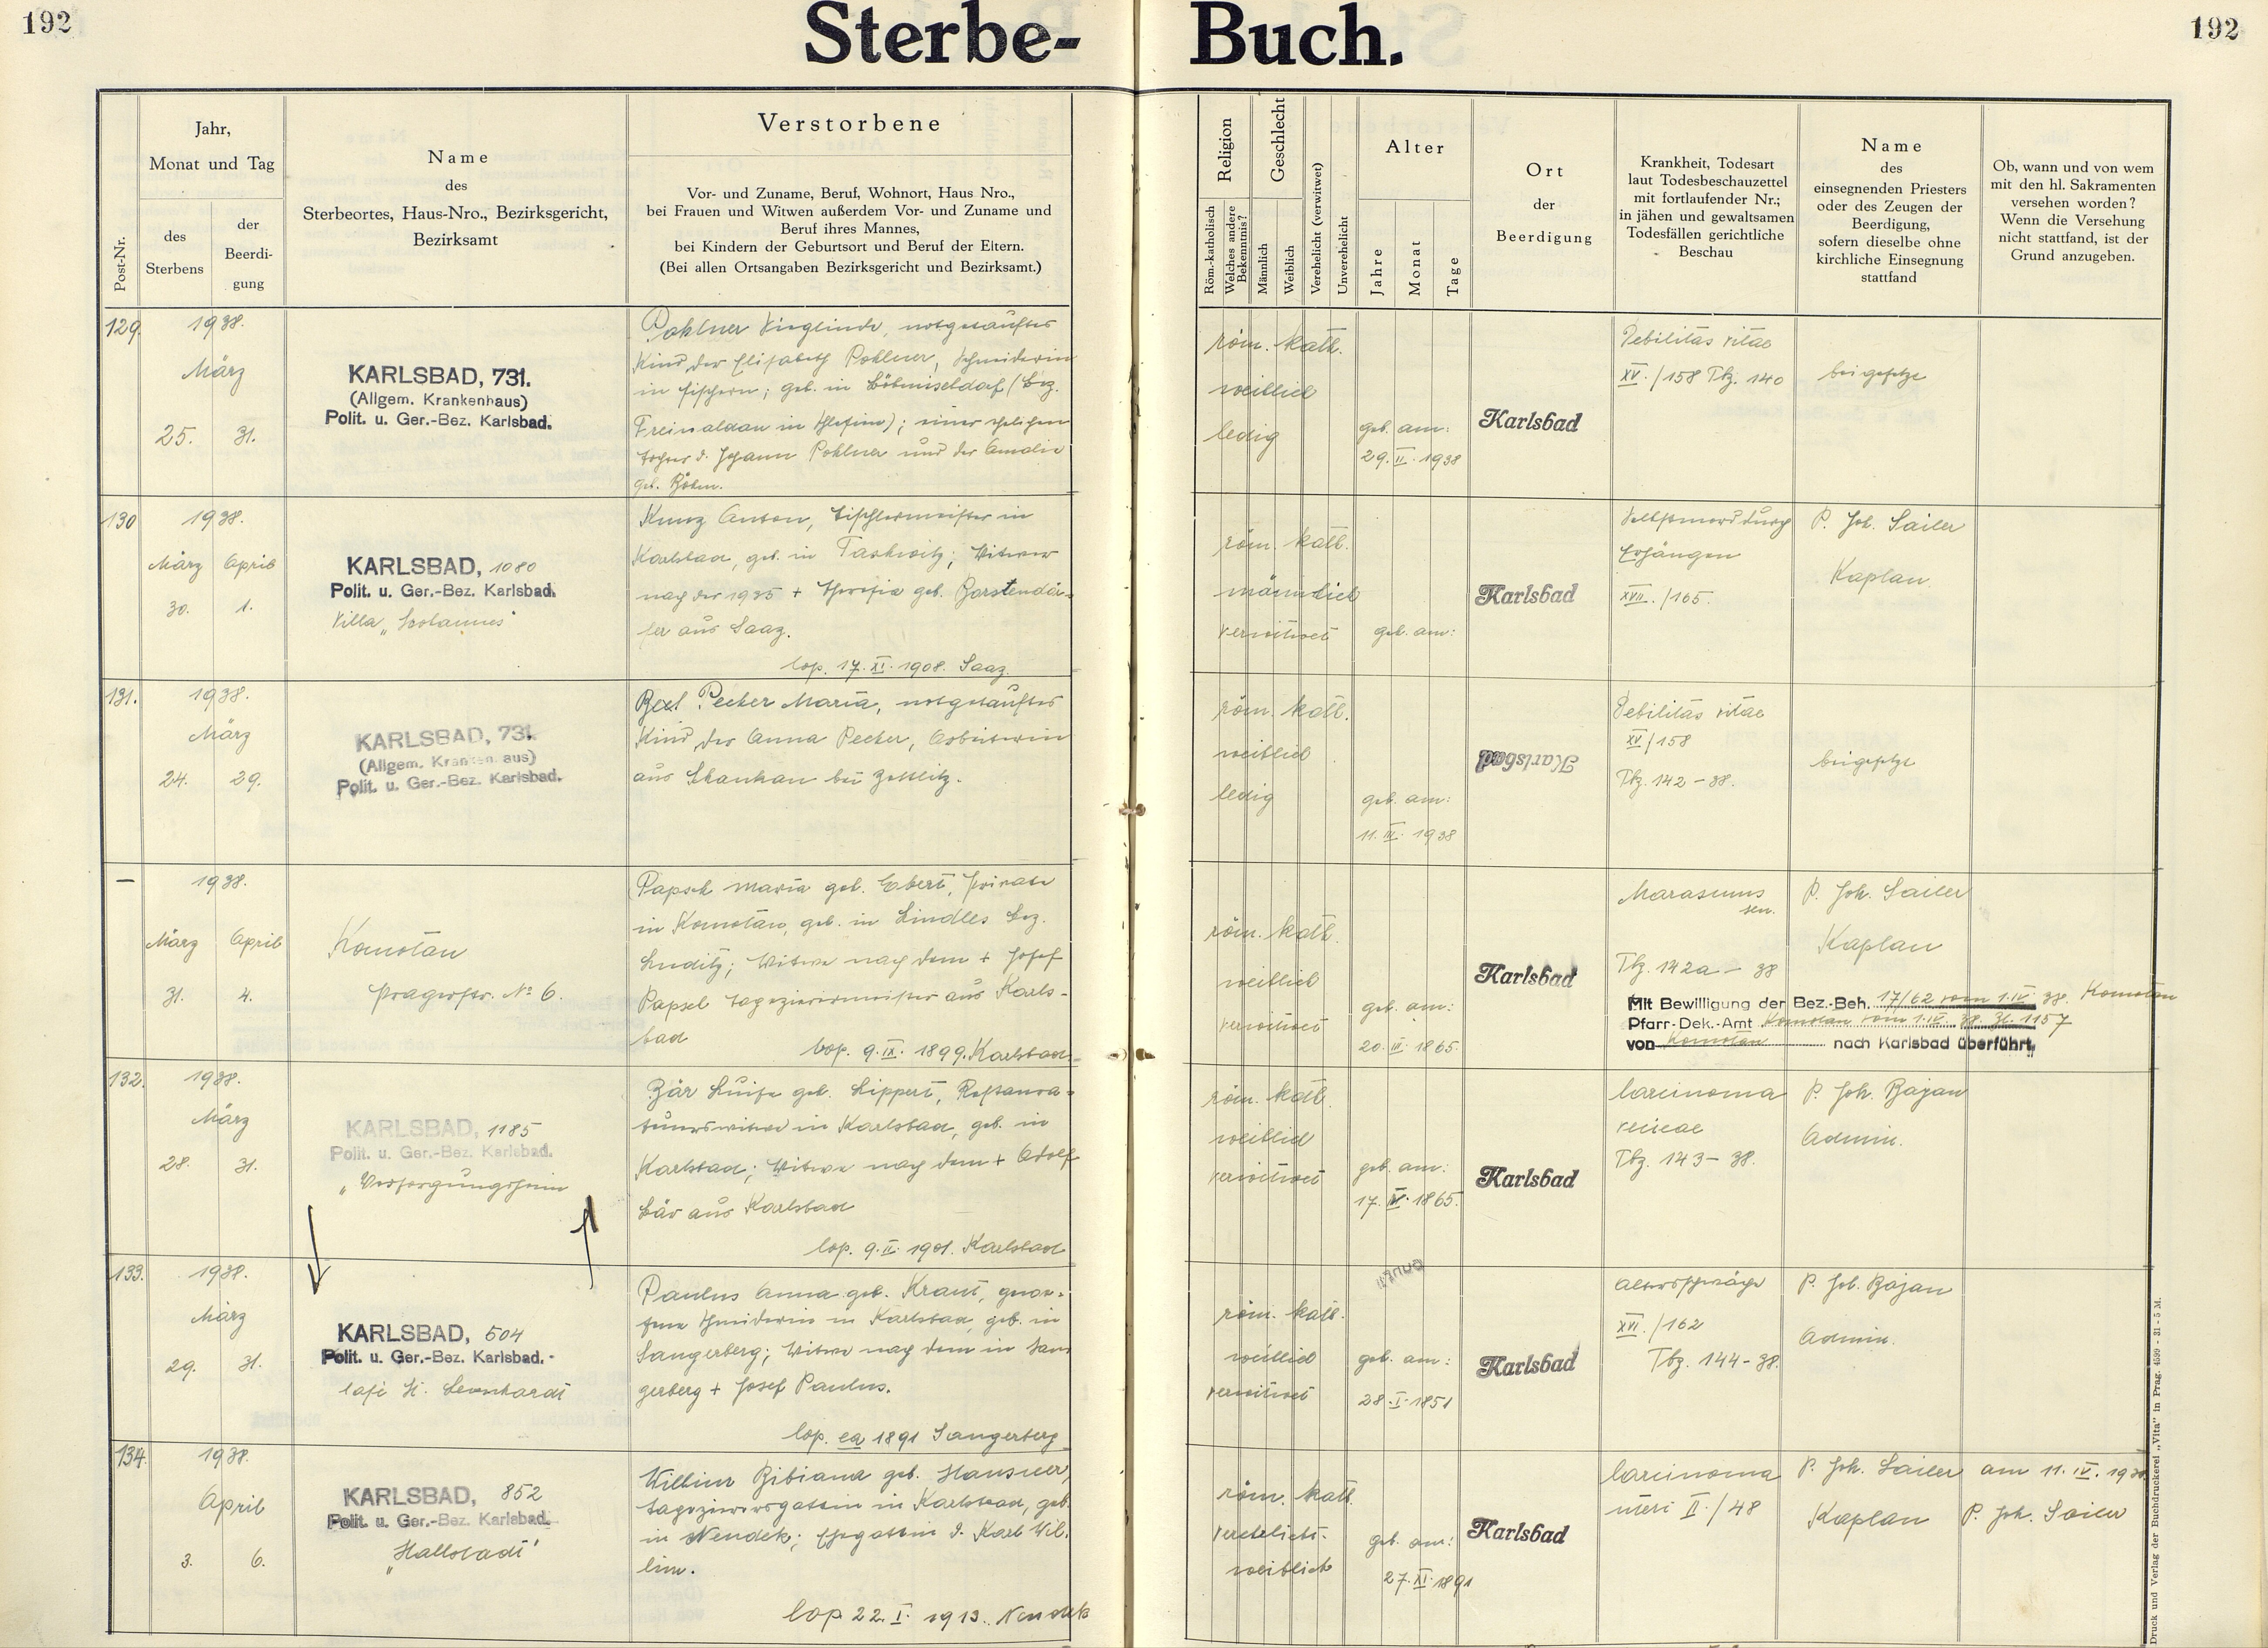 192
Sterbe-
Buch.
192
Post-Nr.
Jahr,
Monat und Tag
des
Sterbens
der
Beerdi-
gung
Name
des
Sterbeortes, Haus-Nro., Bezirksgericht,
Bezirksamt
Verstorbene
Vor- und Zuname, Beruf, Wohnort, Haus Nro.,
bei Frauen und Witwen außerdem Vor- und Zuname und
Beruf ihres Mannes,
bei Kindern der Geburtsort und Beruf der Eltern.
(Bei allen Ortsangaben Bezirksgericht und Bezirksamt.)
Religion
Röm.-katholisch
Welches andere
Bekenntnis?
Geschlecht
Männlich
Weiblich
Verehelicht (verwitwet)
Unverehelicht
Alter
Jahre
Monat
Tage
Ort
der
Beerdigung
Krankheit, Todesart
laut Todesbeschauzettel
mit fortlaufender Nr.;
in jähen und gewaltsamen
Todesfällen gerichtliche
Beschau
Name
des
einsegnenden Priesters
oder des Zeugen der
Beerdigung,
sofern dieselbe ohne
kirchliche Einsegnung
stattfand
Ob, wann und von wem
mit den hl. Sakramenten
versehen worden?
Wenn die Versehung
nicht stattfand, ist der
Grund anzugeben.
129.
1938.
März
25. 31.
KARLSBAD, 731.
(Allgem. Krankenhaus)
Polit. u. Ger.-Bez. Karlsbad.
Pohlner Sieglinde, notgetauftes
Kind der Elisabeth Pohlner, Schneiderin
in Fischern; geb. in Böhmischdorf (Bez.
Freiwaldau in Schlesien); einer ehelichen
Tochter d. Johann Pohlner und der Amalie
geb. Böhm.
röm. kath.
weiblich
ledig
geb. am:
29. II. 1938
Karlsbad
Debilitas vitae
XV. /158 Tbz. 140
beigesetzt
130
1938.
März April
30. 1.
KARLSBAD, 1080
Polit. u. Ger.-Bez. Karlsbad.
Villa
Kunz Anton, Tischlermeister in
Karlsbad, geb. in Taschwitz; Witwer
nach der 1935 + Theresia geb. Borstendör-
fer aus Saaz.
cop. 17. XI. 1908. Saaz
röm. kath.
männlich
verwitwet
geb. am:
Karlsbad
Selbstmord durch
Erhängen
XVII. /165.
P. Joh. Sailer
Kaplan.
131.
1938.
März
24. 29.
KARLSBAD, 731.
(Allgem. Krankenhaus)
Polit. u. Ger.-Bez. Karlsbad.
Pecher Maria, notgetauftes
Kind der Anna Pecher, Arbeiterin
aus Schankau bei Zettlitz.
röm. kath.
weiblich
ledig
geb. am:
11. III. 1938
Karlsbad
Debilitas vitae
XV /158
Tbz. 142 - 38.
beigesetzt
—
1938.
März April
31. 4.
Komotau
Pragerstr. No 6.
Papsch Maria geb. Ebert, Private
in Komotau, geb. in Lindles Bez.
Luditz; Witwe nach dem + Josef
Papsch Tapezierermeister aus Karls-
bad
cop. 9. IX. 1899. Karlsbad.
röm. kath.
weiblich
verwitwet
geb. am:
20. III. 1865.
Karlsbad
Marasmus
sen.
Tbz. 142a - 38
P. Joh. Sailer
Kaplan
Mit Bewilligung der Bez.-Beh. 17/62 vom 1. IV. 38. Komotau
Pfarr-Dek.-Amt Komotau vom 1. IV. 38. Zl. 1157
von Komotau nach Karlsbad überführt.
132.
1938.
März
28. 31.
KARLSBAD, 1185
Polit. u. Ger.-Bez. Karlsbad.
"Versorgungsheim
Bär Luise geb. Lippert, Restaura-
teurswitwe in Karlsbad, geb. in
Karlsbad; Witwe nach dem + Adolf
Bär aus Karlsbad
cop. 9. II. 1901. Karlsbad
röm. kath.
weiblich
verwitwet
geb. am:
17. IV. 1865.
Karlsbad
Carcinoma
vesicae
Tbz. 143 - 38.
P. Joh. Bajan
Admin.
133.
1938.
März
29. 31.
KARLSBAD, 504
Polit. u. Ger.-Bez. Karlsbad.
Café St. Leonhardt
Paulus Anna geb. Kraut, gewe-
sene Schneiderin in Karlsbad, geb. in
Sangerberg; Witwe nach dem in San-
gerberg + Josef Paulus.
cop. ca 1891 Sangerberg
röm. kath.
weiblich
verwitwet
geb. am:
28. I. 1851
Karlsbad
Altersschwäche
XVI. /162
Tbz. 144 - 38.
P. Joh. Bajan
Admin.
134.
1938.
April
3. 6.
KARLSBAD, 852
Polit. u. Ger.-Bez. Karlsbad.
"Hallstadt"
Willim Bibiana geb. Hausner,
Tapezierersgattin in Karlsbad, geb.
in Neudek; Ehegattin d. Karl Wil-
lim.
cop 22. I. 1913. Neudek
röm. kath.
verehelicht.
weiblich
geb. am:
27. XI. 1891
Karlsbad
Carcinoma
uteri II. /48
P. Joh. Sailer
Kaplan
am 11. IV. 1938
P. Joh. Sailer
Druck und Verlag der Buchdruckerei „Vita" in Prag. 4599 - 31 - 5 M.